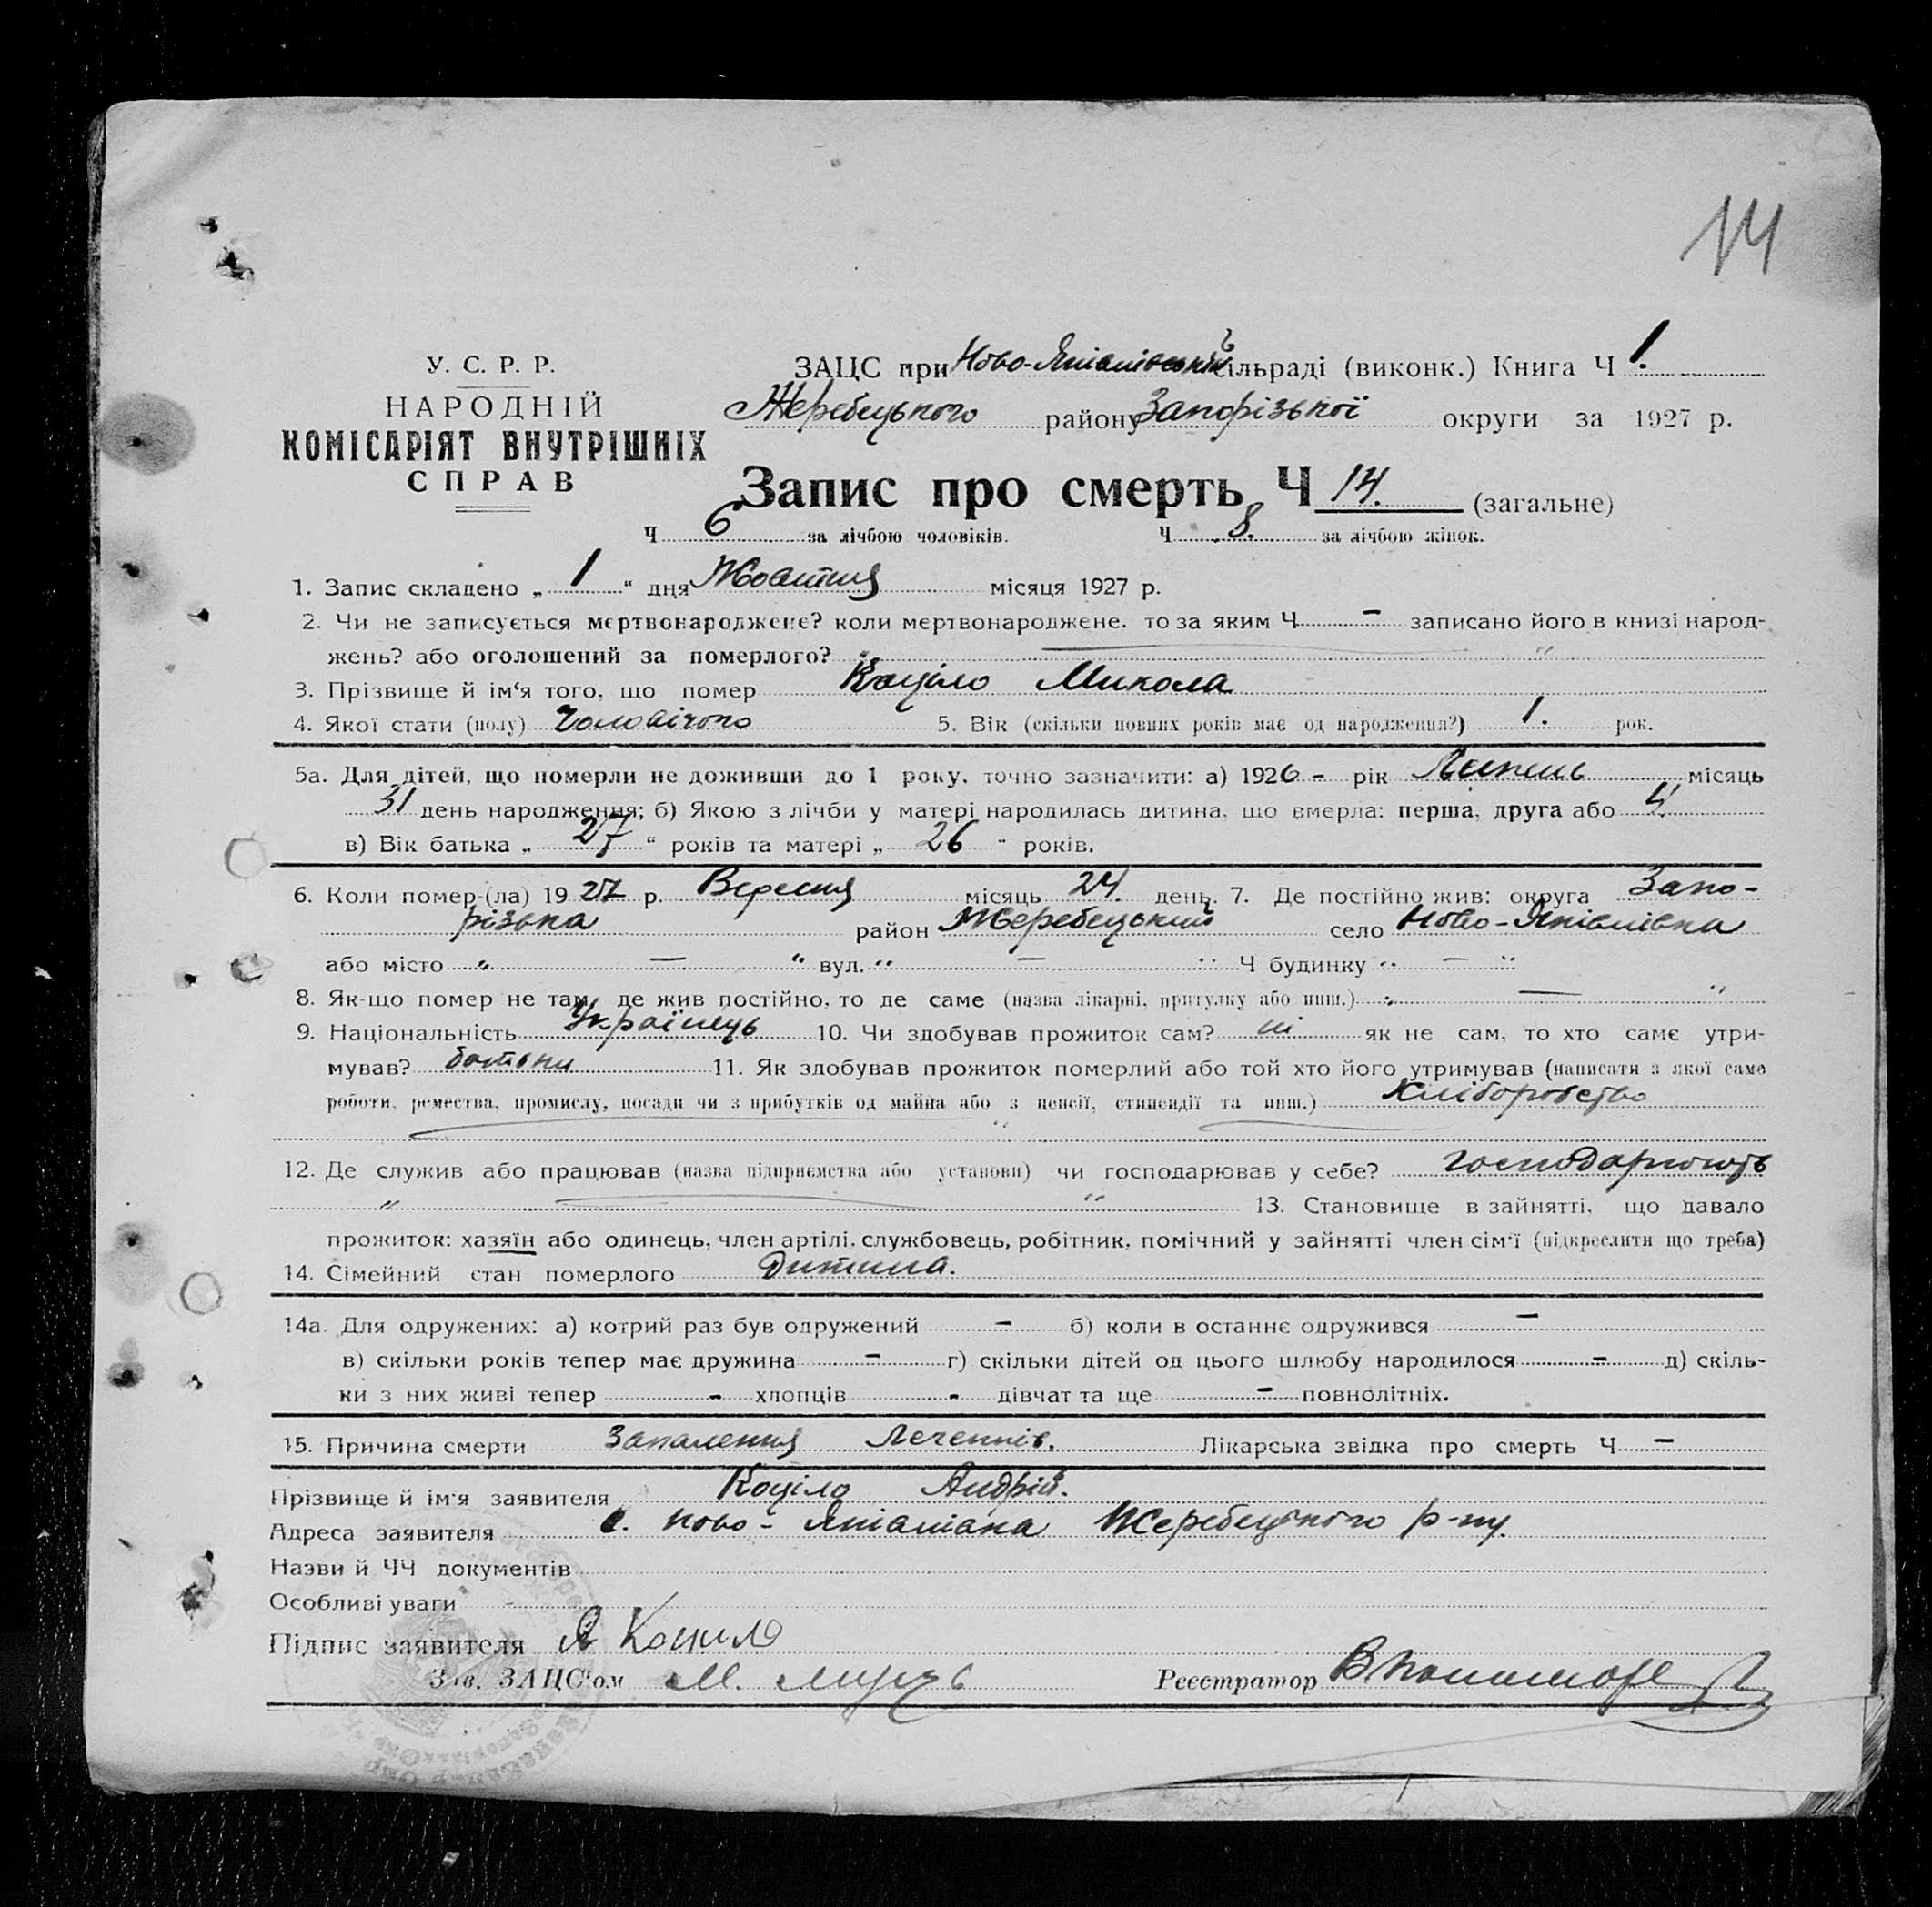 14
У. С. Р. Р.
НАРОДНІЙ
КОМІСАРІЯТ ВНУТРІШНІХ
СПРАВ
ЗАЦС при Ново- сільраді (виконк.) Книга Ч 1.
Жеребецького району Запорізької округи за 1927 р.
Запис про смерть Ч 14. (загальне)
Ч 6 за лічбою чоловіків. Ч 8. за лічбою жінок.
1. Запис складено „ 1 “ дня Жовтня місяця 1927 р.
2. Чи не записується мертвонароджене? коли мертвонароджене, то за яким Ч – записано його в книзі народ-
жень? або оголошений за померлого? „ — “
3. Прізвище й ім‘я того, що помер Коціло Микола
4. Якої стати (полу) Чоловічого 5. Вік (скільки повних років має од народження?) 1. рок.
5а. Для дітей, що померли не доживши до 1 року, точно зазначити: а) 1926 – рік Липень місяць
31 день народження; б) Якою з лічби у матері народилась дитина, що вмерла: перша, друга або 4.
в) Вік батька „ 27 “ років та матері „ 26 “ років.
6. Коли помер-(ла) 1927 р. Вересня місяць 24. день. 7. Де постійно жив: округа Запо-
різька район Жеребецький село Ново-
або місто „ — “ вул. “ — “ Ч будинку “ — “
8. Як-що помер не там, де жив постійно, то де саме (назва лікарні, притулку або инш.) „ — “
9. Національність Українець 10. Чи здобував прожиток сам? ні як не сам, то хто саме утри-
мував? батьки 11. Як здобував прожиток померлий або той хто його утримував (написати з якої саме
роботи, ремества, промислу, посади чи з прибутків од майна або з пенсії, стипендії та инш.) Хліборобство
— “ —
12. Де служив або працював (назва підприємства або установи) чи господарював у себе? господарюють
„ — “ 13. Становище в зайнятті, що давало
прожиток: хазяїн або одинець, член артілі, службовець, робітник, помічний у зайнятті член сім'ї (підкреслити що треба)
14. Сімейний стан померлого Дитина.
14а. Для одружених: а) котрий раз був одружений – б) коли в останнє одружився –
в) скільки років тепер має дружина – г) скільки дітей од цього шлюбу народилося – д) скіль-
ки з них живі тепер – хлопців – дівчат та ще – повнолітніх.
15. Причина смерти Запалення Легеннів. Лікарська звідка про смерть Ч –
Прізвище й ім'я заявителя Коціло Андрій.
Адреса заявителя с. Ново- Жеребецького р-ну.
Назви й ЧЧ документів
Особливі уваги
Підпис заявителя А Коцило
Зав. ЗАЦС'ом М.
Реєстратор